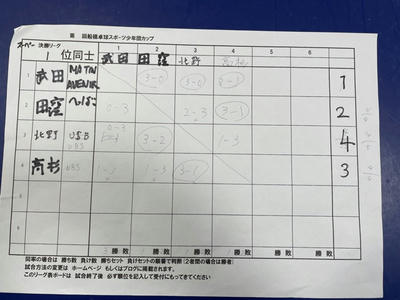 第 回船橋卓球スポーツ少年団カップ
スーパー 決勝リーグ
1 位同士 1 武田 2 田窪 3 北野 4 高杉 5 6
1 武田 MATIN AVENIR 3-0 3-0 3-1 1
2 田窪 へいばこ 0-3 2-3 3-1 2
3 北野 USB 0-3 3-2 1-3 4
4 高杉 1-3 1-3 3-1 3
5
6
勝敗 勝敗 勝敗 勝敗 勝敗 勝敗
同率の場合は 勝ち数 負け数 勝ちセット 負けセットの順番で判断(2者間の場合は勝者)
試合方法の変更は ホームページ もしくはブログに掲載されます。
このリーグ表ボードは 試合終了後 必ず順位を記入して受付にもってきてください